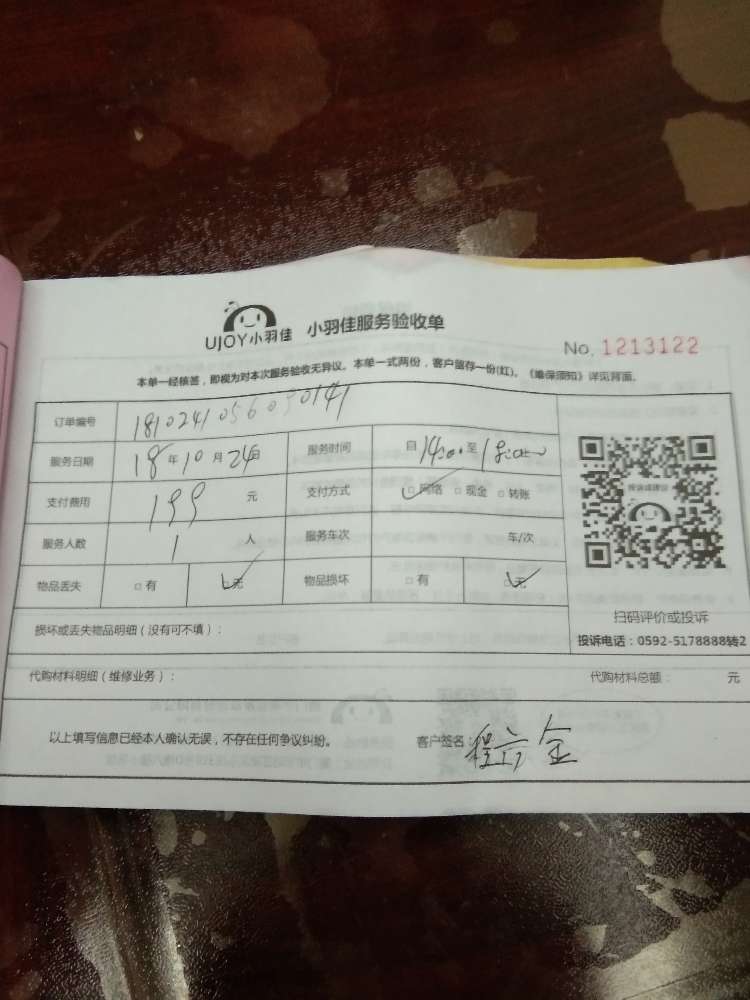 UJOY小羽佳 小羽佳服务验收单
No. 1213122
本单一经核签，即视为对本次服务验收无异议。本单一式两份，客户留存一份(红)。《维保须知》详见背面。
订单编号
服务日期 18年10月24日 服务时间 自14:00至18:00止
支付费用 199元 支付方式 ☑网络 □现金 □转账
服务人数 1人 服务车次 车/次
物品丢失 □有 ☑无 物品损坏 □有 ☑无
扫码评价或投诉
投诉电话：0592-5178888转2
损坏或丢失物品明细（没有可不填）：
代购材料明细（维修业务）： 代购材料总额： 元
以上填写信息已经本人确认无误，不存在任何争议纠纷。 客户签名：